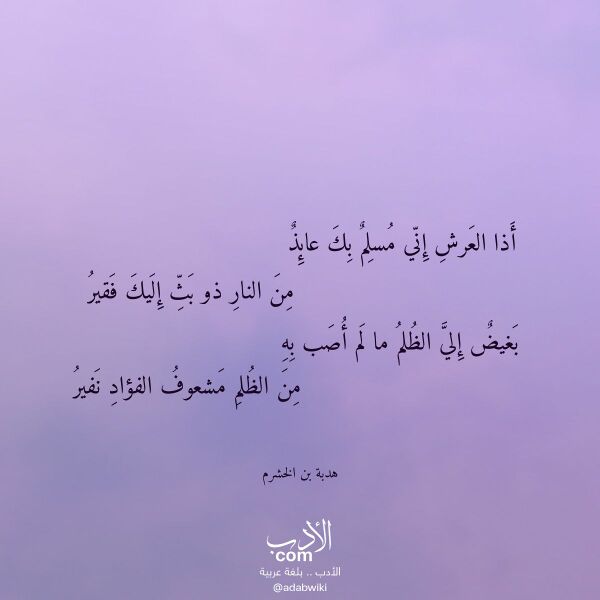 أَذا العَرشِ إِنّي مُسلِمٌ بِكَ عائِذٌ
مِنَ النارِ ذو بَثٍّ إِلَيكَ فَقيرُ
بَغيضٌ إِليَّ الظُلمُ ما لَم أُصَب بِهِ
مِنَ الظُلمِ مَشعوفُ الفؤادِ نَفيرُ
هدبة بن الخشرم
الأدب
com
الأدب .. بلغة عربية
@adabwiki